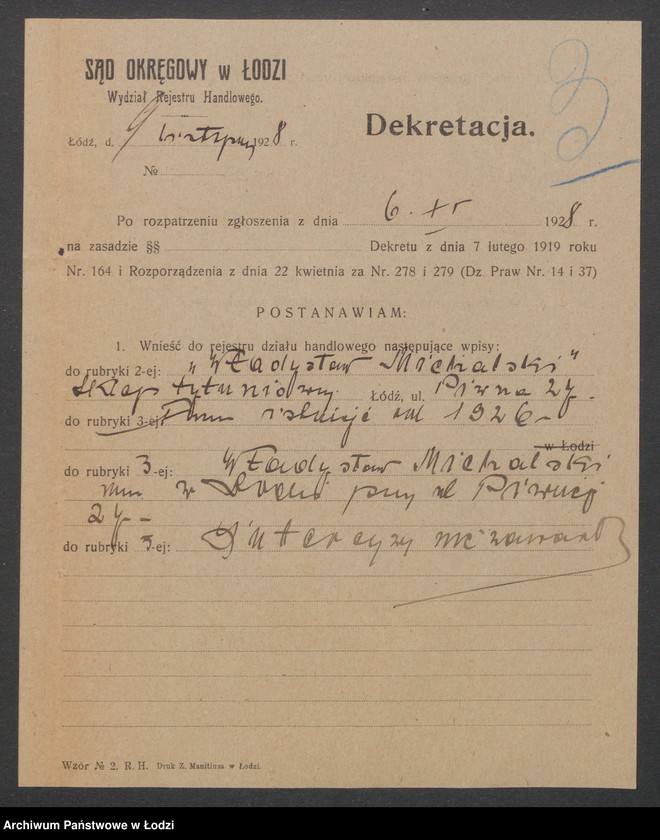 SĄD OKRĘGOWY w ŁODZI
Wydział Rejestru Handlowego.
Dekretacja.
Łódź, d. 9 listopada 1928 r.
№
Po rozpatrzeniu zgłoszenia z dnia 6. XI 1928 r.
na zasadzie §§ Dekretu z dnia 7 lutego 1919 roku
Nr. 164 i Rozporządzenia z dnia 22 kwietnia za Nr. 278 i 279 (Dz. Praw Nr. 14 i 37)
POSTANAWIAM:
1. Wnieść do rejestru działu handlowego następujące wpisy:
do rubryki 2-ej: „Władysław Michalski”
sklep tytuniowy Łódź, ul. Piwna 27 -
do rubryki 3-ej: Firma istnieje od 1926 -
w Łodzi
do rubryki 3-ej: Władysław Michalski
zam w Łodzi przy ul Piwnej
27 -
do rubryki 5-ej: Intercyzy nie zawarł
Wzór № 2. R. H. Druk Z. Manitiusa w Łodzi.
Archiwum Państwowe w Łodzi